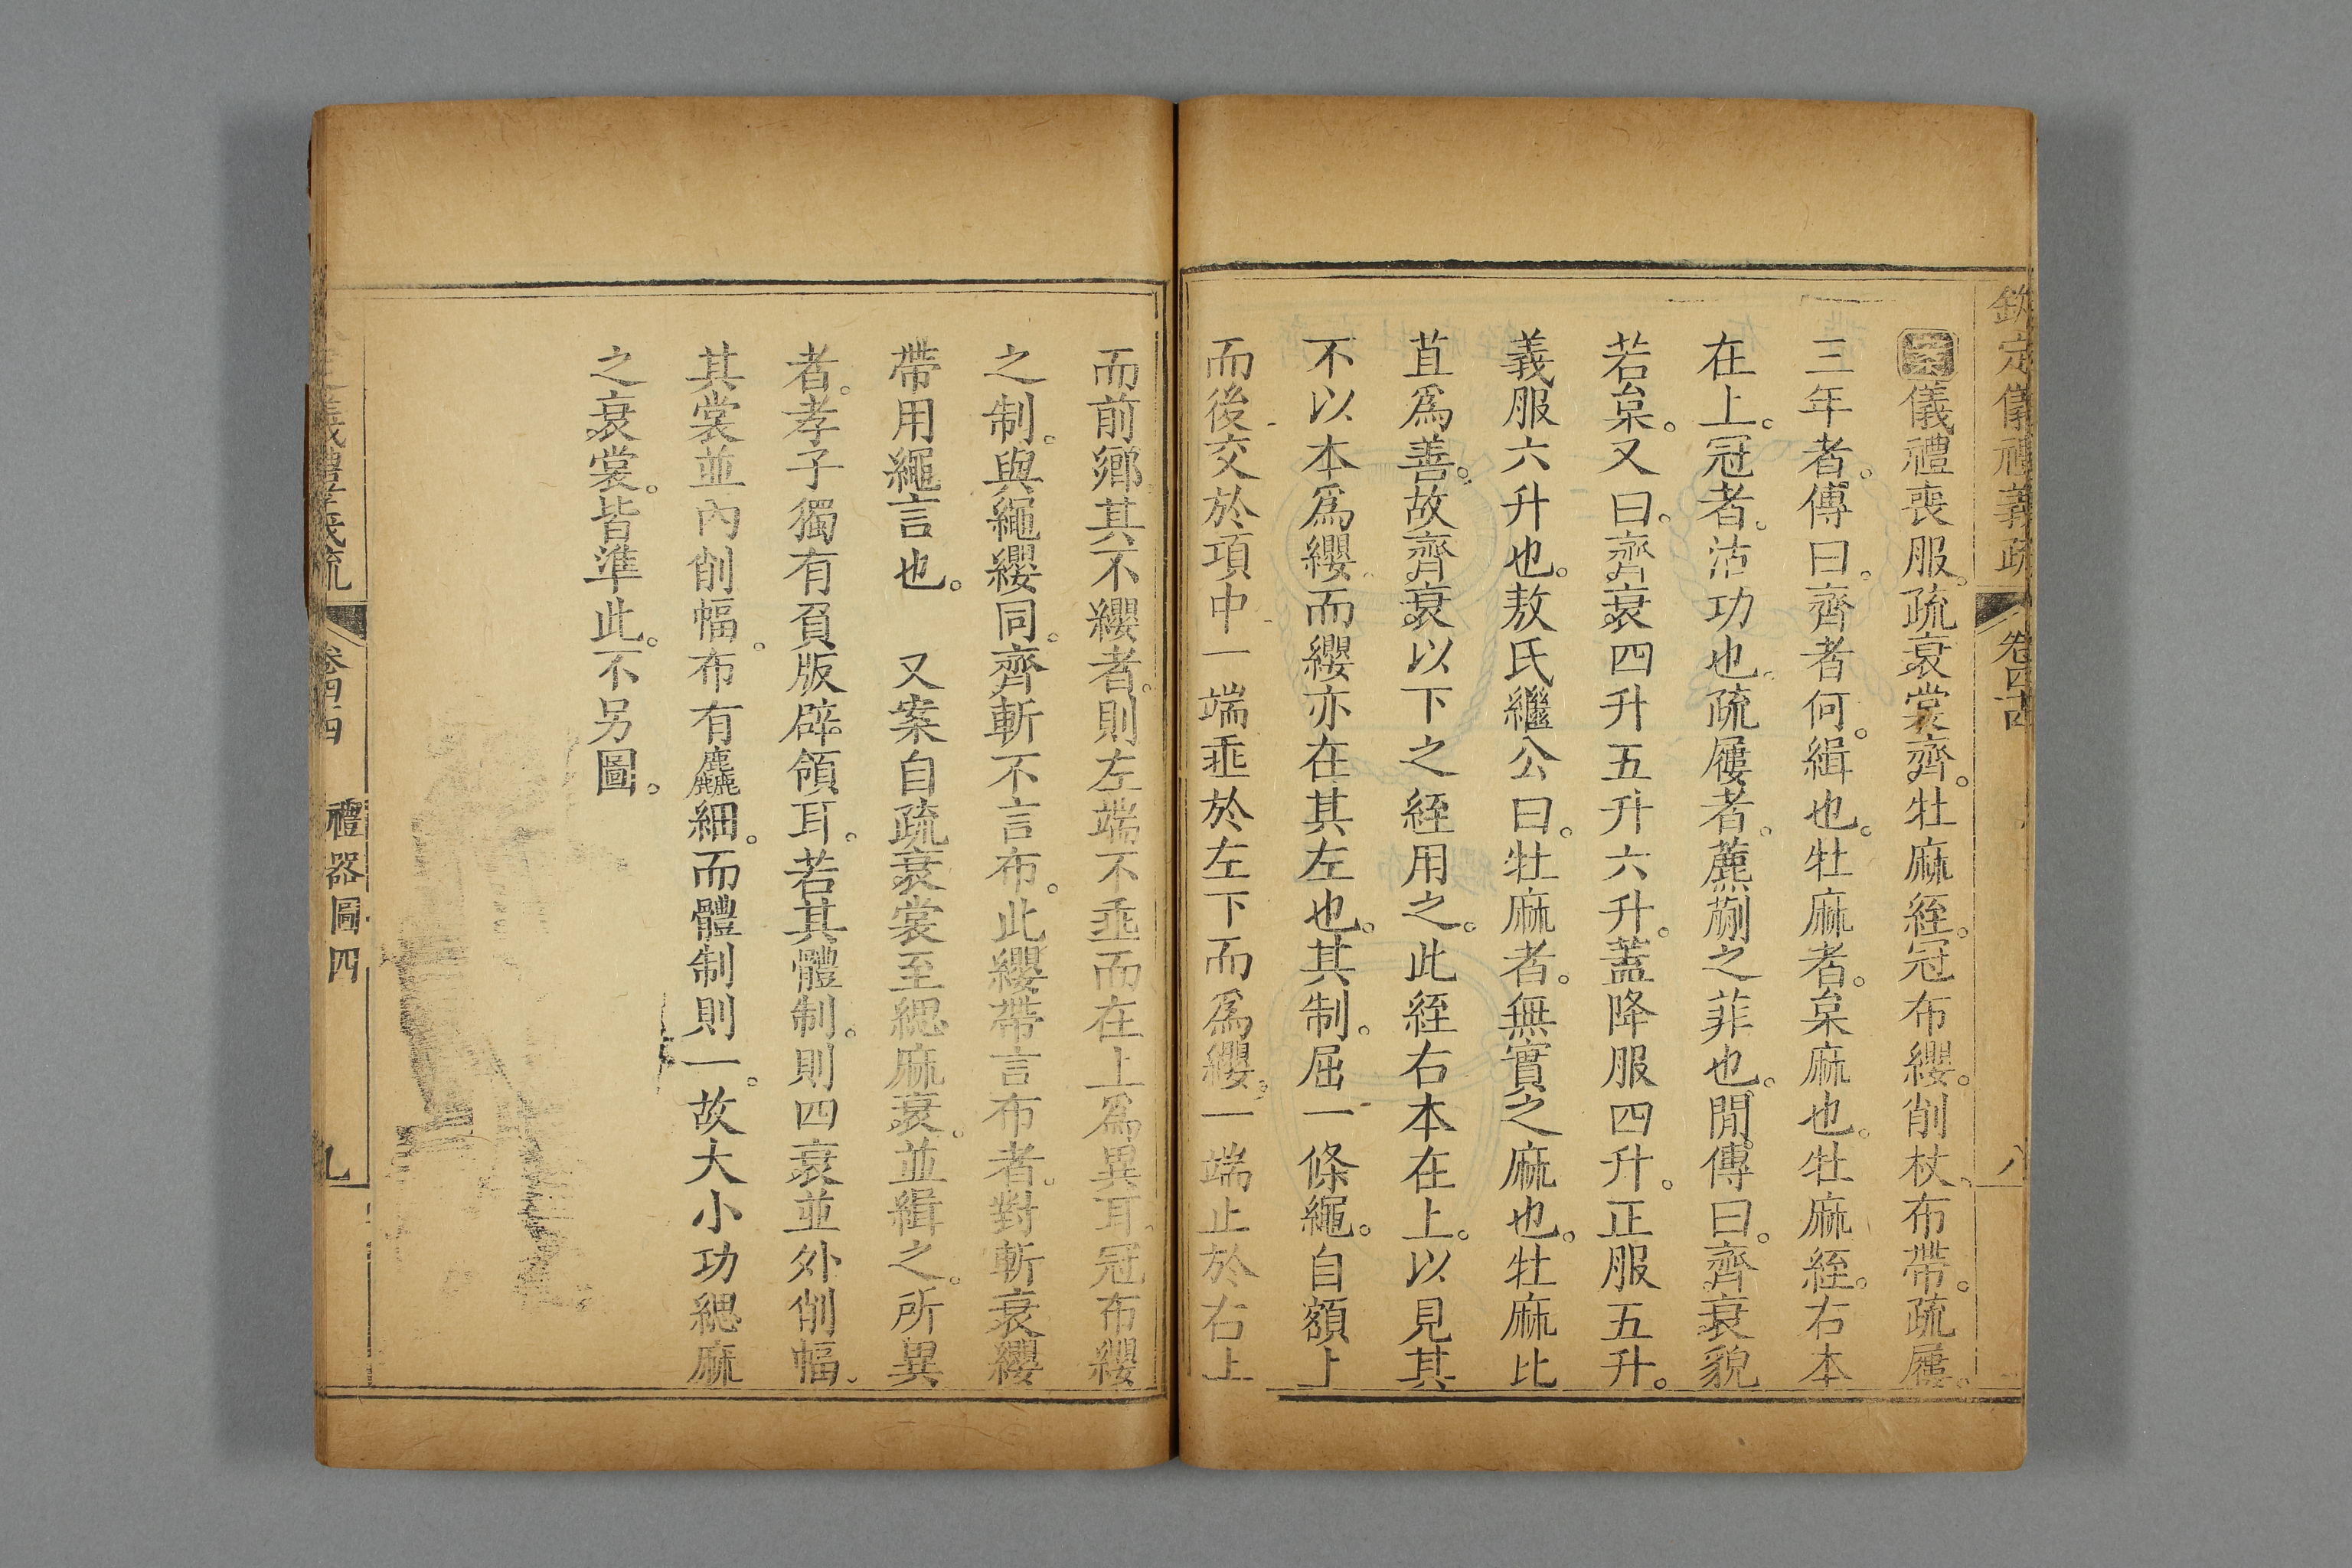 欽定儀禮義疏 卷四十四 八
案儀禮喪服。疏衰裳齊。牡麻絰。冠布纓。削杖。布帶。疏屨。
三年者。傳曰。齊者何。緝也。牡麻者。枲麻也。牡麻絰。右本
在上。冠者。沽功也。疏屨者。藨蒯之菲也。閒傳曰。齊衰貌
若枲。又曰。齊衰四升五升六升。蓋降服四升。正服五升。
義服六升也。敖氏繼公曰。牡麻者。無實之麻也。牡麻比
苴爲善。故齊衰以下之絰用之。此絰右本在上。以見其
不以本爲纓。而纓亦在其左也。其制。屈一條繩。自額上
而後交於項中。一端垂於左下而爲纓。一端止於右上
而前鄉。其不纓者。則左端不垂而在上爲異耳。冠布纓
之制。與繩纓同。齊斬不言布。此纓帶言布者。對斬衰纓
帶用繩言也。 又案自疏衰裳至緦麻衰。並緝之。所異
者。孝子獨有負版辟領耳。若其體制。則四衰並外削幅。
其裳並內削幅。布有麤細。而體制則一。故大小功緦麻
之衰裳。皆準此。不另圖。
儀禮義疏 卷四十四 禮器圖四 九